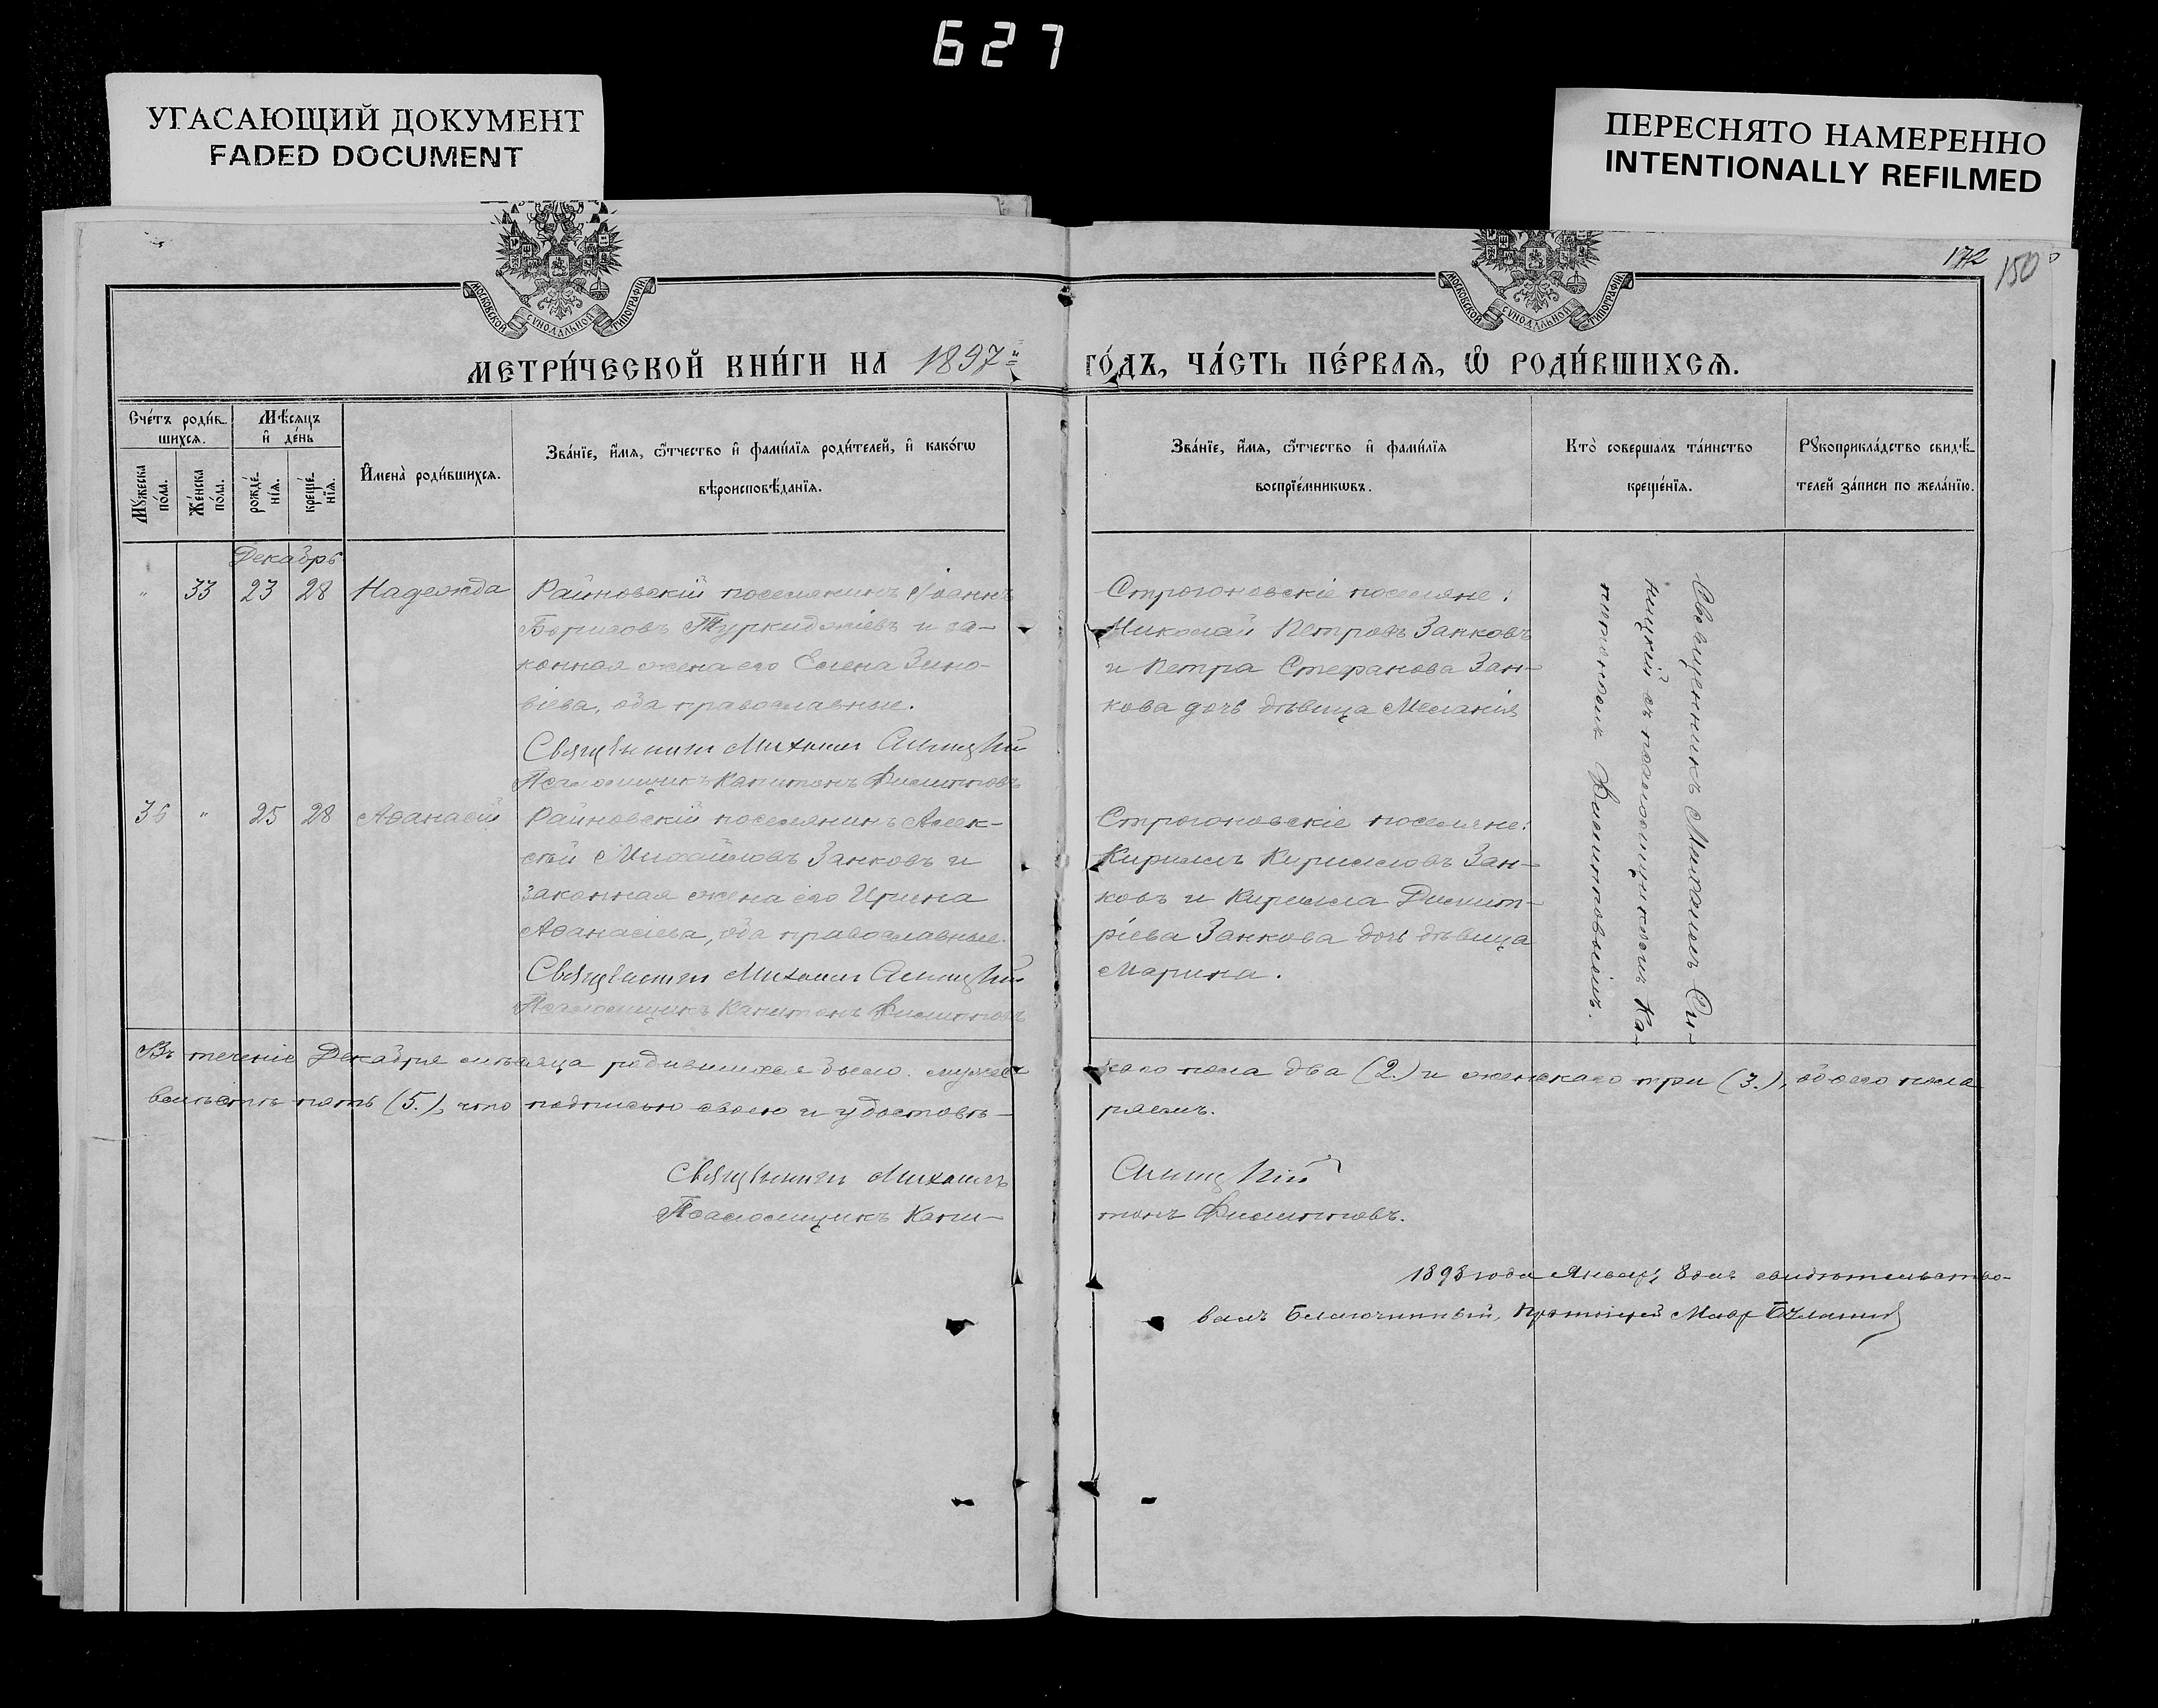 627
УГАСАЮЩИЙ ДОКУМЕНТ
FADED DOCUMENT
ПЕРЕСНЯТО НАМЕРЕННО
INTENTIONALLY REFILMED
172
150
МОСКОВСКОЙ СѴНОДАЛЬНОЙ ТИПОГРАФІИ
МОСКОВСКОЙ СѴНОДАЛЬНОЙ ТИПОГРАФІИ
МЕТРИ́ЧЕСКОЙ КНИ́ГИ НА 1897 й ГО́ДЪ, ЧА́СТЬ ПЕ́РВАѦ, Ѡ РОДИ́ВШИХСѦ.
Сче́тъ роди́в-
шихсѧ.
Мꙋжеска
по́ла.
Же́нска
по́ла.
Мѣ́сѧцъ
и҆ де́нь
рожде́-
нїѧ.
креще́-
нїѧ.
И҆мена̀ роди́вшихсѧ.
Зва́нїе, и҆́мѧ, ѻ҆́тчество и҆ фами́лїѧ роди́телей, и҆ како́гѡ
вѣроисповѣ́данїѧ.
Зва́нїе, и҆́мѧ, ѻ҆́тчество и҆ фами́лїѧ
воспрїе́мникѡвъ.
Кто̀ соверша́лъ та́инство
креще́нїѧ.
Рꙋкоприкла́дство свидѣ́-
телей за́писи по жела́нїю.
Декабрь
" 33 23 28 Надежда
Райновскій поселянинъ Іоаннъ
Борисовъ Туркиджіевъ и за-
конная жена его Елена Зино-
віева, оба православные.
Священникъ Михаилъ Синицкій
Псаломщикъ Капитонъ Филипповъ
Строгоновскіе поселяне:
Николай Петровъ Занковъ
и Петра Стефанова Зан-
кова дочь дѣвица Меланія
Священникъ Михаилъ Си-
ницкій съ псаломщикомъ Ка-
питономъ Филипповымъ.
36 " 25 28 Аѳанасій
Райновскій поселянинъ Алек-
сѣй Михайловъ Занковъ и
законная жена его Ирина
Аѳанасіева, оба православные.
Священникъ Михаилъ Синицкій
Псаломщикъ Капитонъ Филипповъ
Строгоновскіе поселяне:
Кириллъ Кирилловъ Зан-
ковъ и Кирилла Димит-
ріева Занкова дочь дѣвица
Марина.
Въ теченіе Декабря мѣсяца родившихся было: мужес-
каго пола два (2.) и женскаго три (3.), обоего пола
вмѣстѣ пять (5.), что подписью своею и удостовѣ-
ряемъ.
Священникъ Михаилъ Синицкій
Псаломщикъ Капи-
тонъ Филипповъ.
1898 года Январ. 8 дня свидѣтельство-
валъ Благочинный, Протоіерей